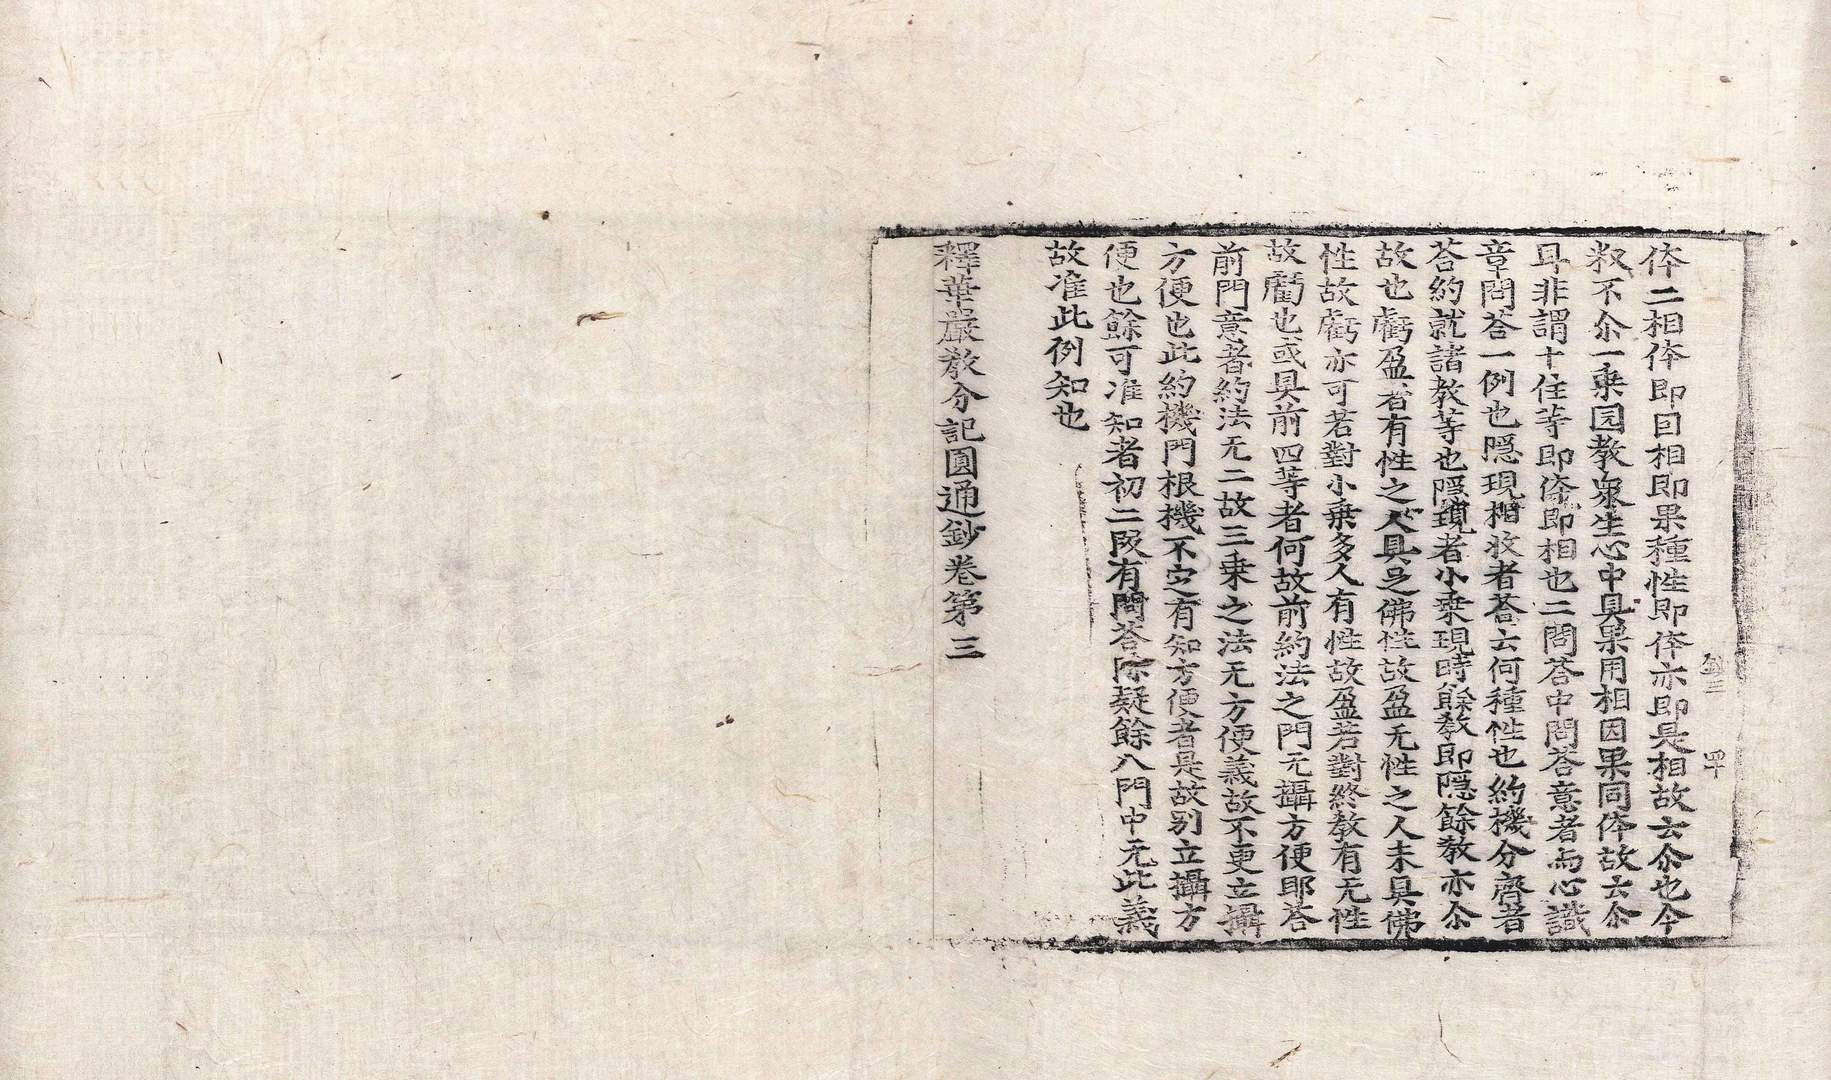 体二相体即因相即果種性即体亦即是相故云尒也今
教不尒一乗园教衆生心中具果用相因果同体故云尒
耳非謂十住等即体即相也二問荅中問荅意者而心識
章問荅一例也隠現相収者荅云何種性也約機分齊者
荅約就諸教等也隠現者小乗現時餘教即隠餘教亦尒
故也虧盈者有性之人具足佛性故盈无性之人未具佛
性故虧亦可若對小乗多人有性故盈若對終教有无性
故虧也或具前四等者何故前約法之門无攝方便耶荅
前門意者約法无二故三乗之法无方便義故不更立攝
方便也此約機門根機不定有知方便者是故别立攝方
便也餘可准知者初二叚有問荅除疑餘八門中无此義
故准此例知也
釋華嚴教分記圓通鈔卷第三
鈔三 四十